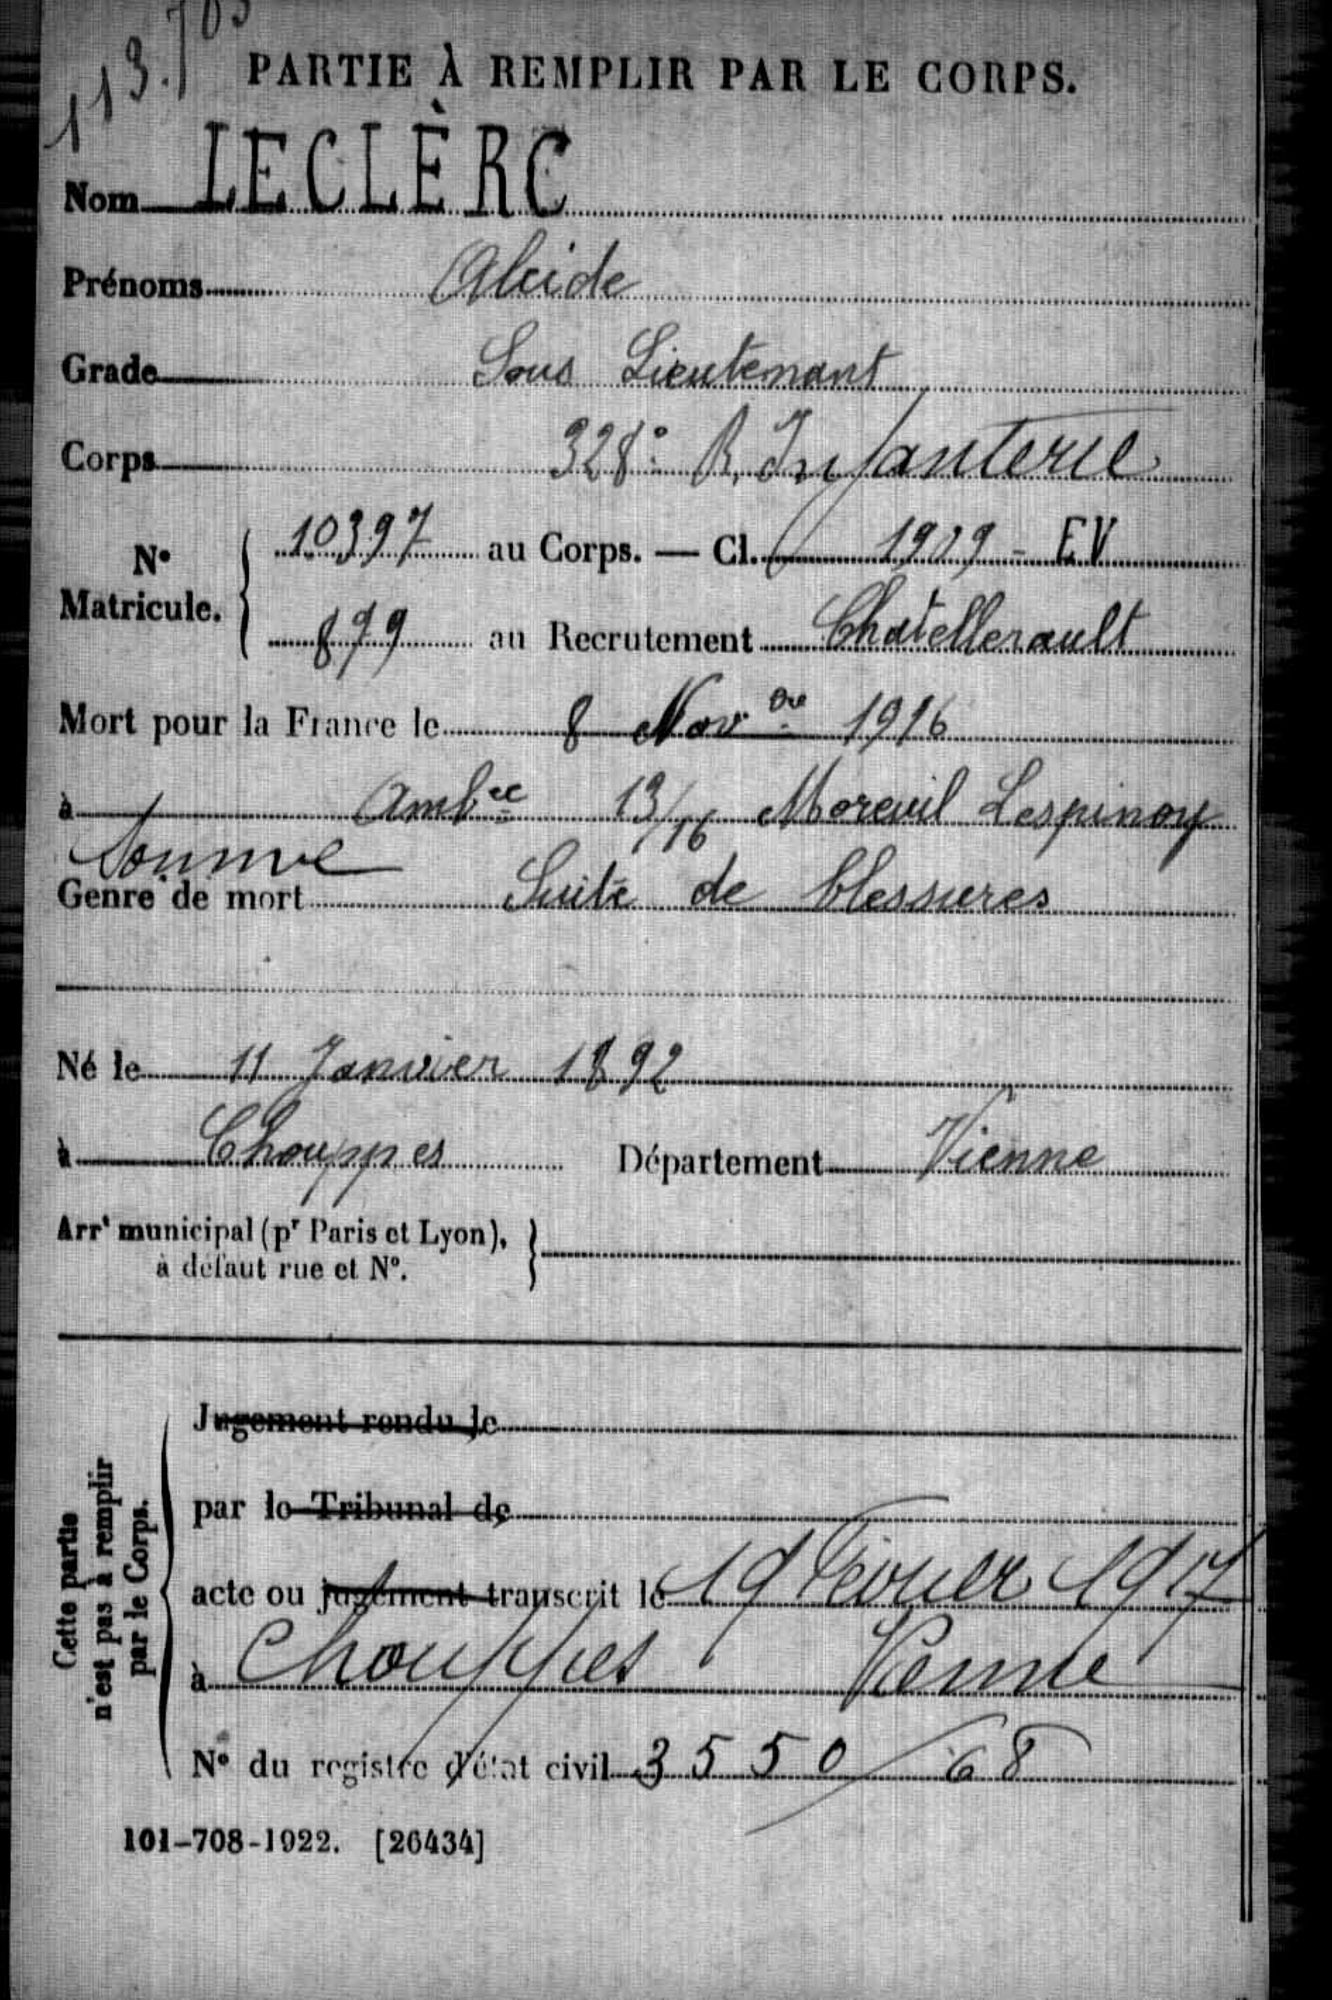 113.703
PARTIE À REMPLIR PAR LE CORPS.
Nom LECLÈRC
Prénoms Alcide
Grade Sous Lieutenant
Corps 328e R. Infanterie
N° Matricule. { 10397 au Corps. — Cl. 1909 - EV
879 au Recrutement Chatellerault
Mort pour la France le 8 Novbre 1916
à Ambce 13/16 Moreuil Lespinoy
Somme
Genre de mort Suite de blessures
Né le 11 Janvier 1892
à Chouppes Département Vienne
Arrt municipal (pr Paris et Lyon),
à défaut rue et N°.
Cette partie
n'est pas à remplir
par le Corps.
Jugement rendu le
par le Tribunal de
acte ou jugement transcrit le 19 Février 1917
à Chouppes Vienne
N° du registre d'état civil 3550/68
101-708-1922. [26434]